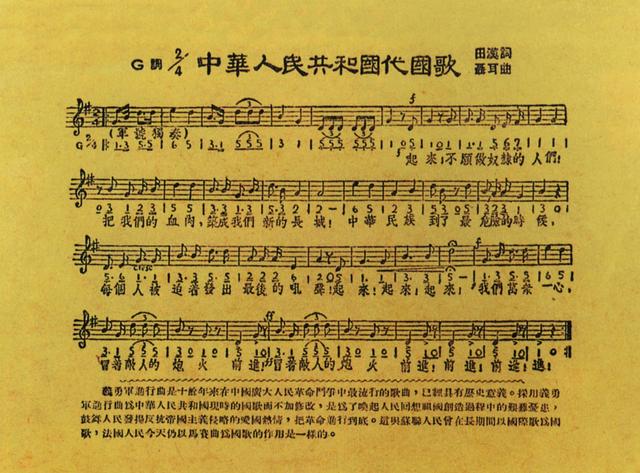 G調 2/4 中華人民共和國代國歌
田漢詞
聶耳曲
(軍號獨奏)
起來!不願做奴隸的人們!
把我們的血肉,築成我們新的長城!中華民族到了最危險的時候,
每個人被迫著發出最後的吼聲!起來!起來!起來!我們萬衆一心,
冒著敵人的炮火前進!冒著敵人的炮火前進!前進!前進!進!
義勇軍進行曲是十餘年來在中國廣大人民革命鬥爭中最流行的歌曲,已經具有歷史意義。採用義勇
軍進行曲爲中華人民共和國現時的國歌而不加修改,是爲了喚起人民回想祖國創造過程中的艱難憂患,
鼓舞人民發揚反抗帝國主義侵略的愛國熱情,把革命進行到底。這與蘇聯人民曾在長期間以國際歌爲國
歌,法國人民今天仍以馬賽曲爲國歌的作用是一樣的。